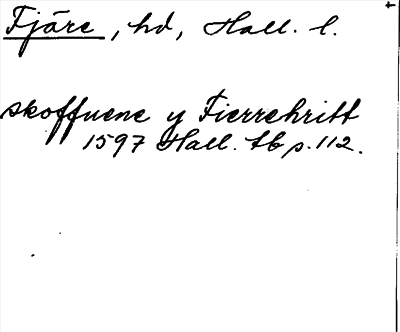 Fjäre, hd, Hall. l.
skoffuene y Fierrehritt
1597 Hall. tb p. 112.